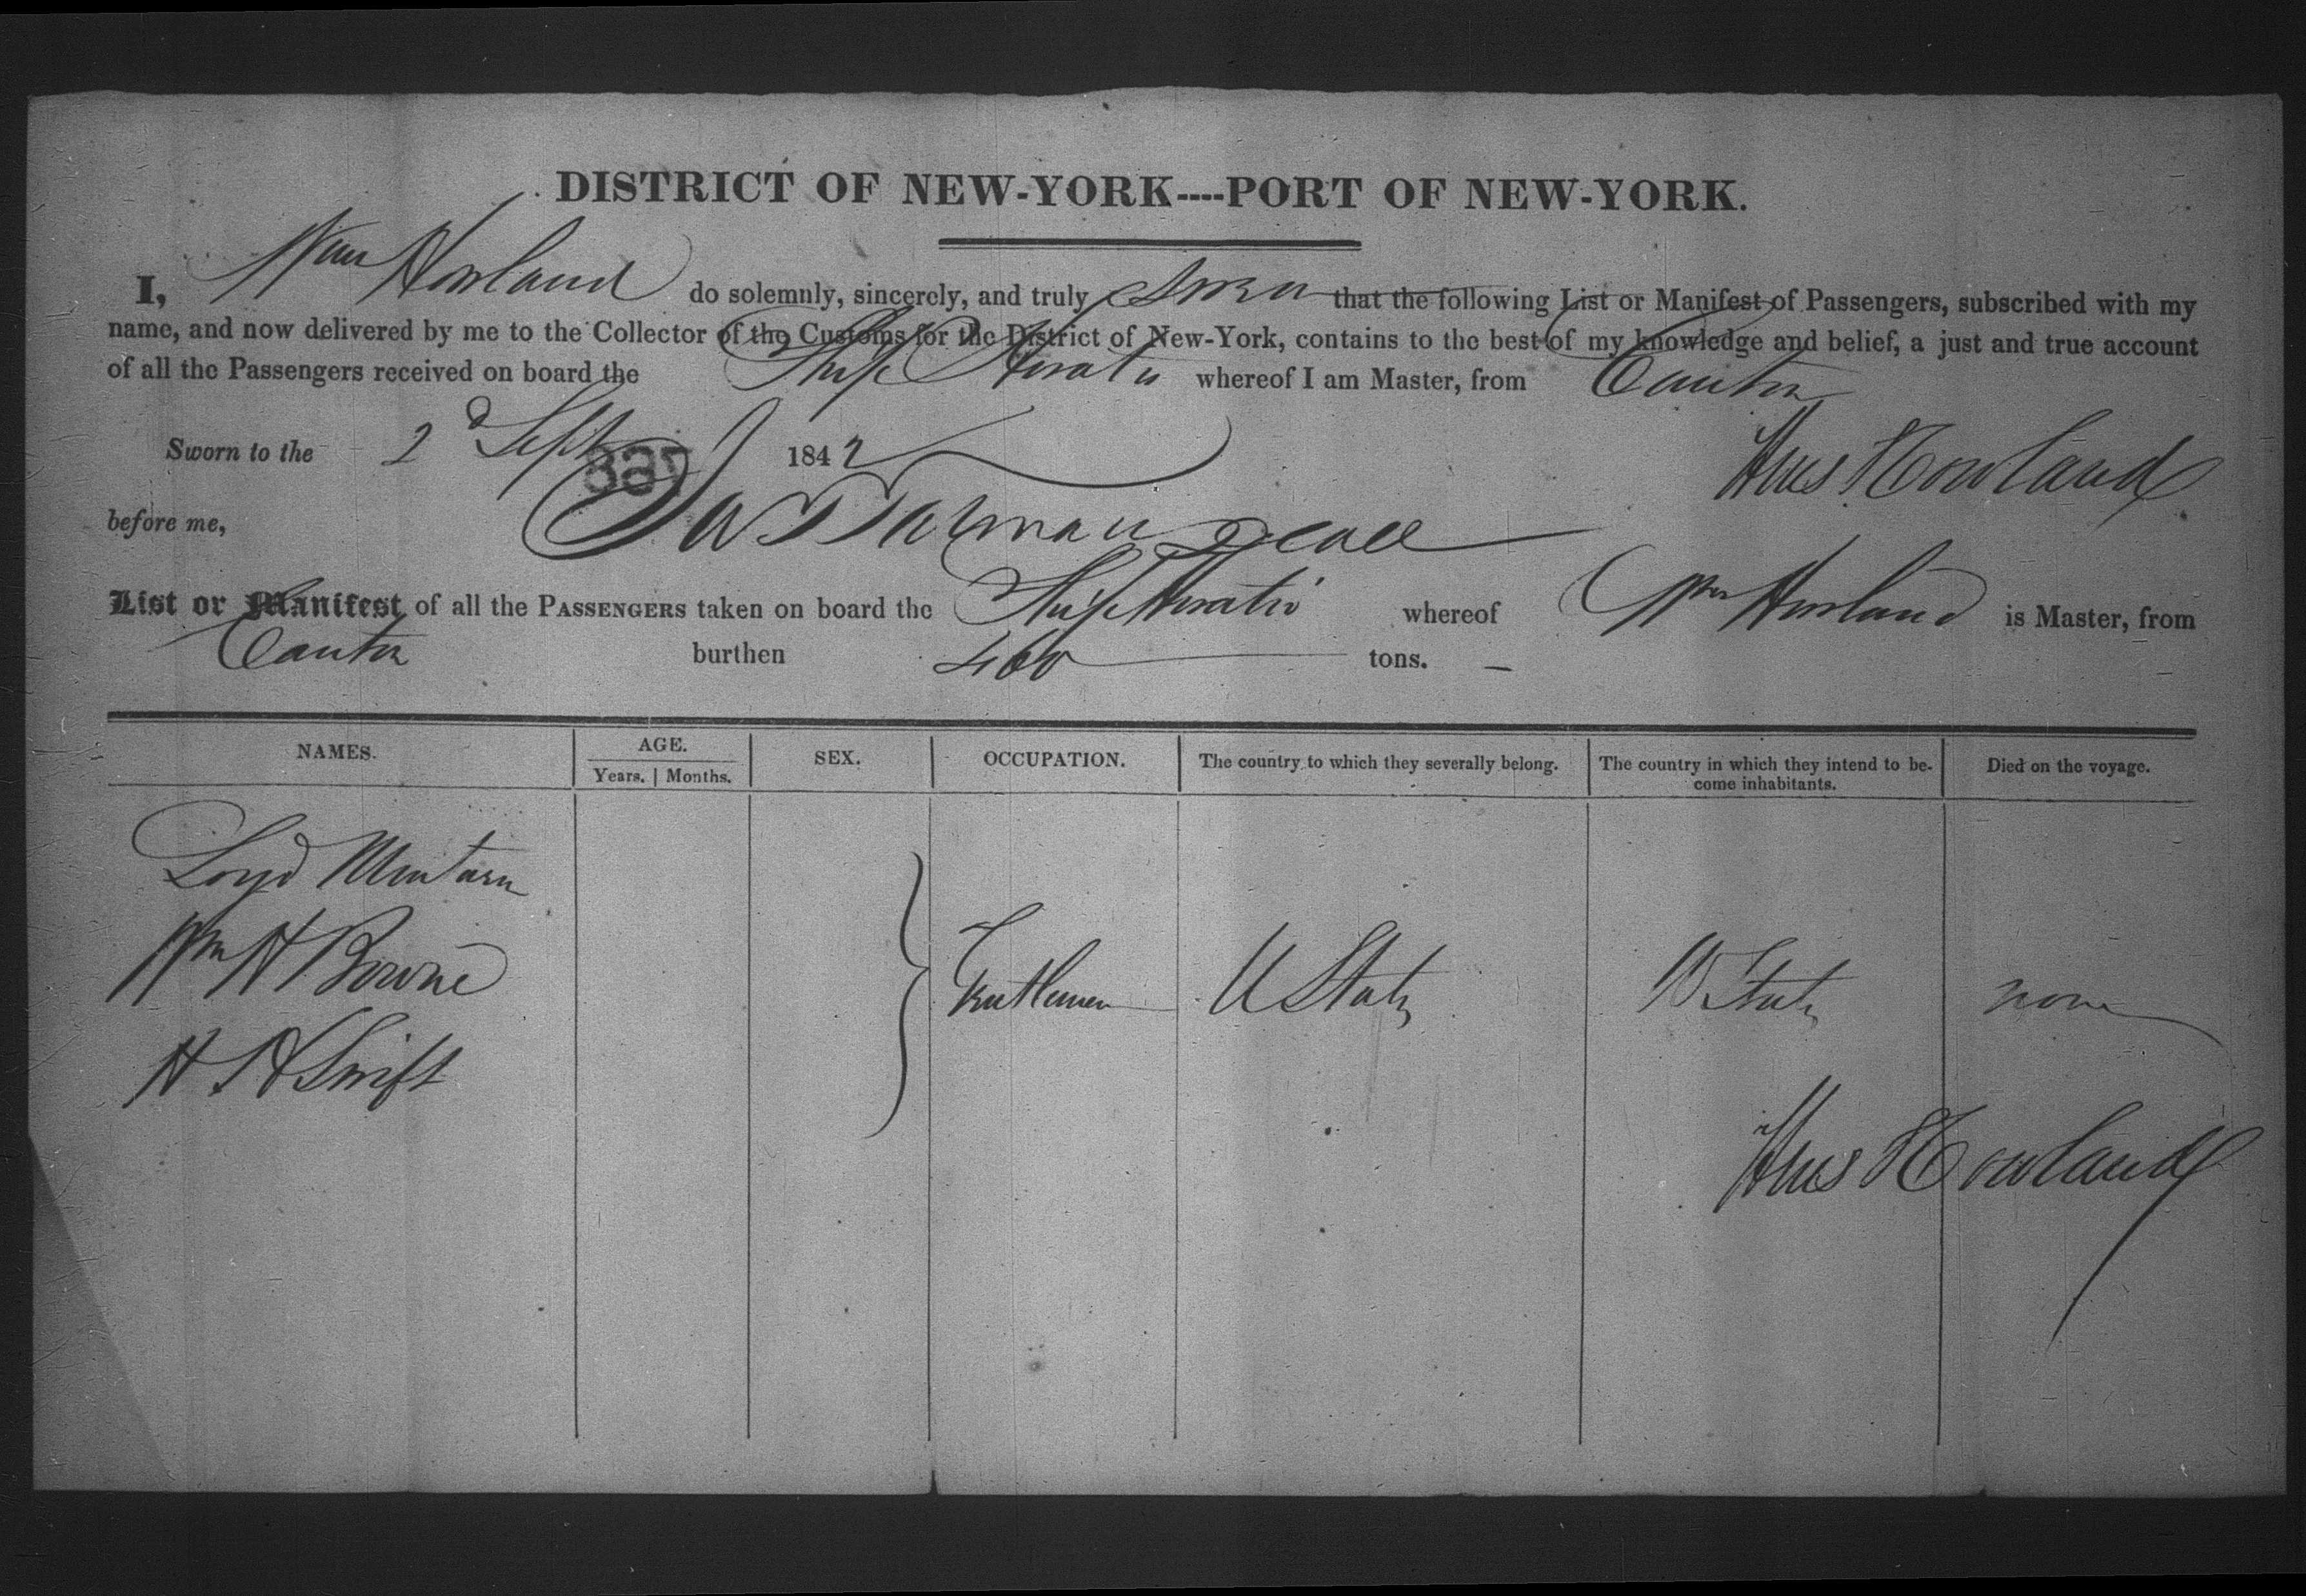 DISTRICT OF NEW-YORK----PORT OF NEW-YORK.
I, Wm Howland do solemnly, sincerely, and truly swear that the following List or Manifest of Passengers, subscribed with my
name, and now delivered by me to the Collector of the Customs for the District of New-York, contains to the best of my knowledge and belief, a just and true account
of all the Passengers received on board the Ship Horatio whereof I am Master, from Canton
Sworn to the 2d Sept 1842
Wm Howland
before me,
List or Manifest of all the PASSENGERS taken on board the Ship Horatio whereof Wm Howland is Master, from
Canton burthen 460 tons.
NAMES. AGE. SEX. OCCUPATION. The country to which they severally belong. The country in which they intend to be- Died on the voyage.
Years. Months. come inhabitants.
Loyd Minturn
Wm H Bowne
Gentlemen U States U States none
H H Swift
Howland